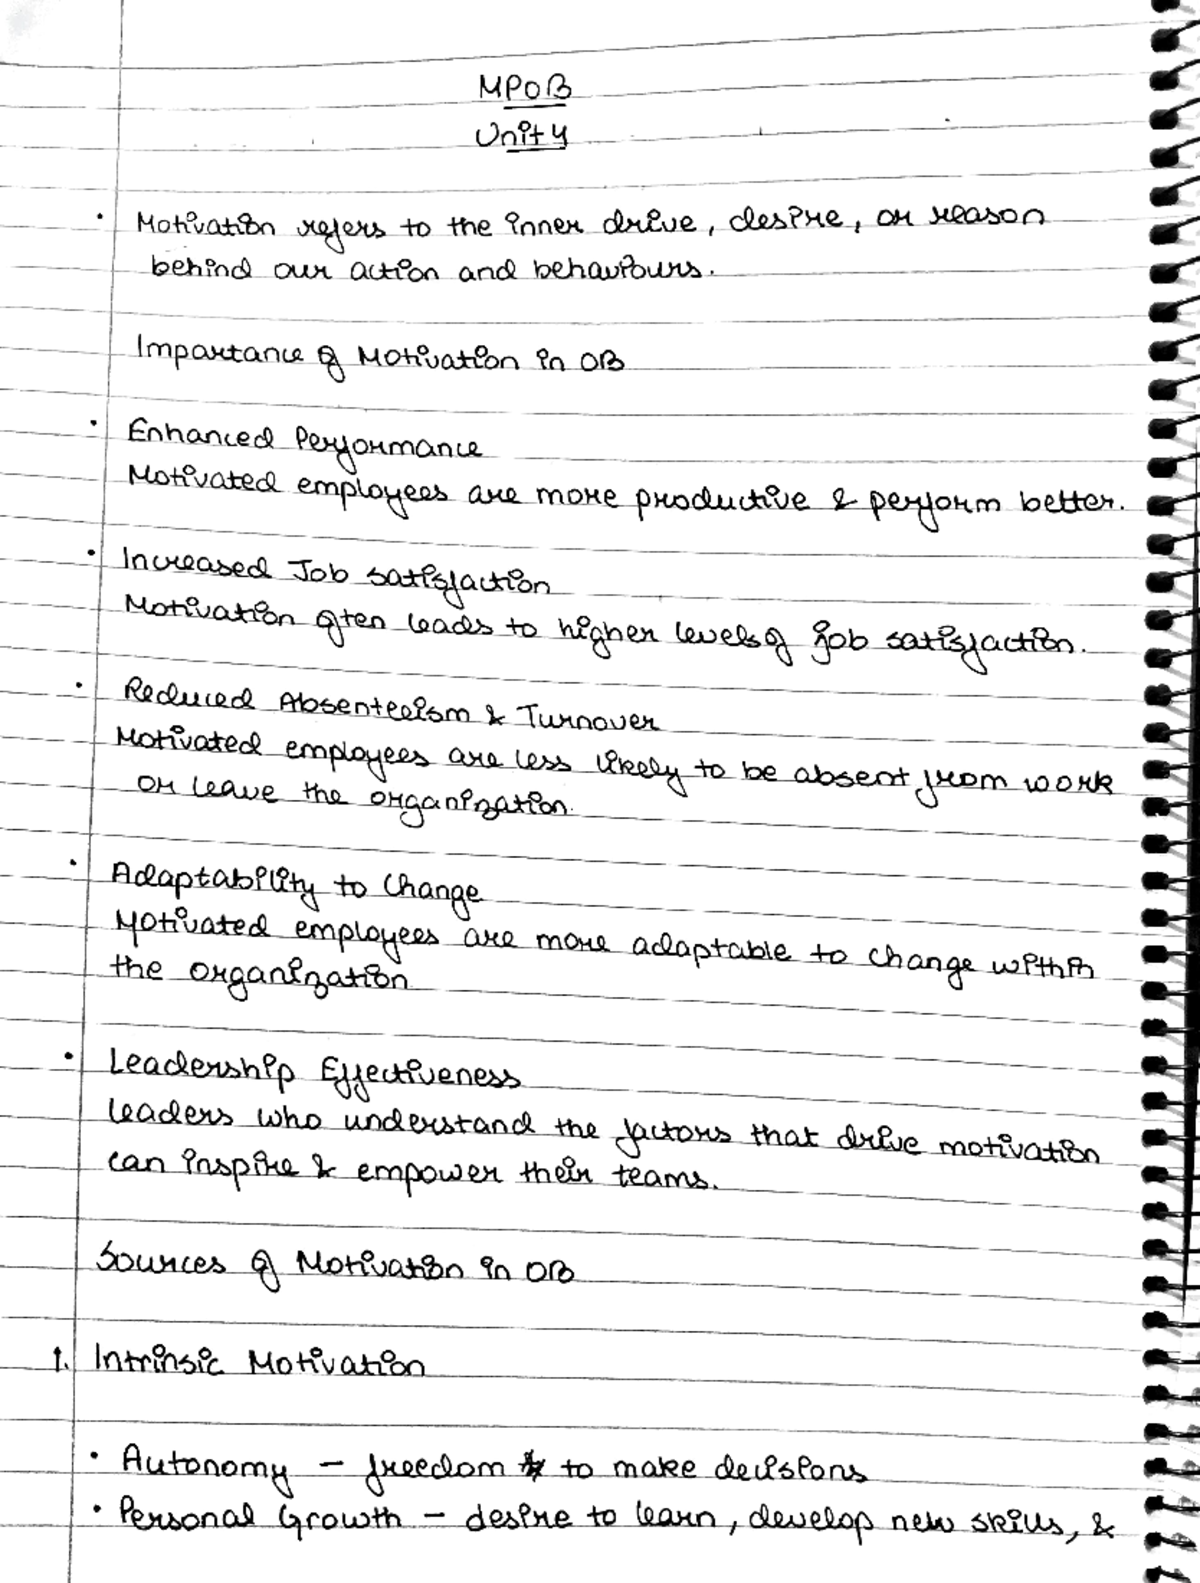 MPOB
Unit 4
• Motivation refers to the inner drive, desire, or reason
behind our action and behaviours.
Importance of Motivation in OB
• Enhanced Performance
Motivated employees are more productive & perform better.
• Increased Job satisfaction
Motivation often leads to higher levels of job satisfaction.
• Reduced Absenteeism & Turnover
Motivated employees are less likely to be absent from work
or leave the organization.
• Adaptability to Change
Motivated employees are more adaptable to change within
the organization
• Leadership Effectiveness
Leaders who understand the factors that drive motivation
can inspire & empower their teams.
Sources of Motivation in OB
1. Intrinsic Motivation
• Autonomy – freedom to make decisions
• Personal Growth – desire to learn, develop new skills, &